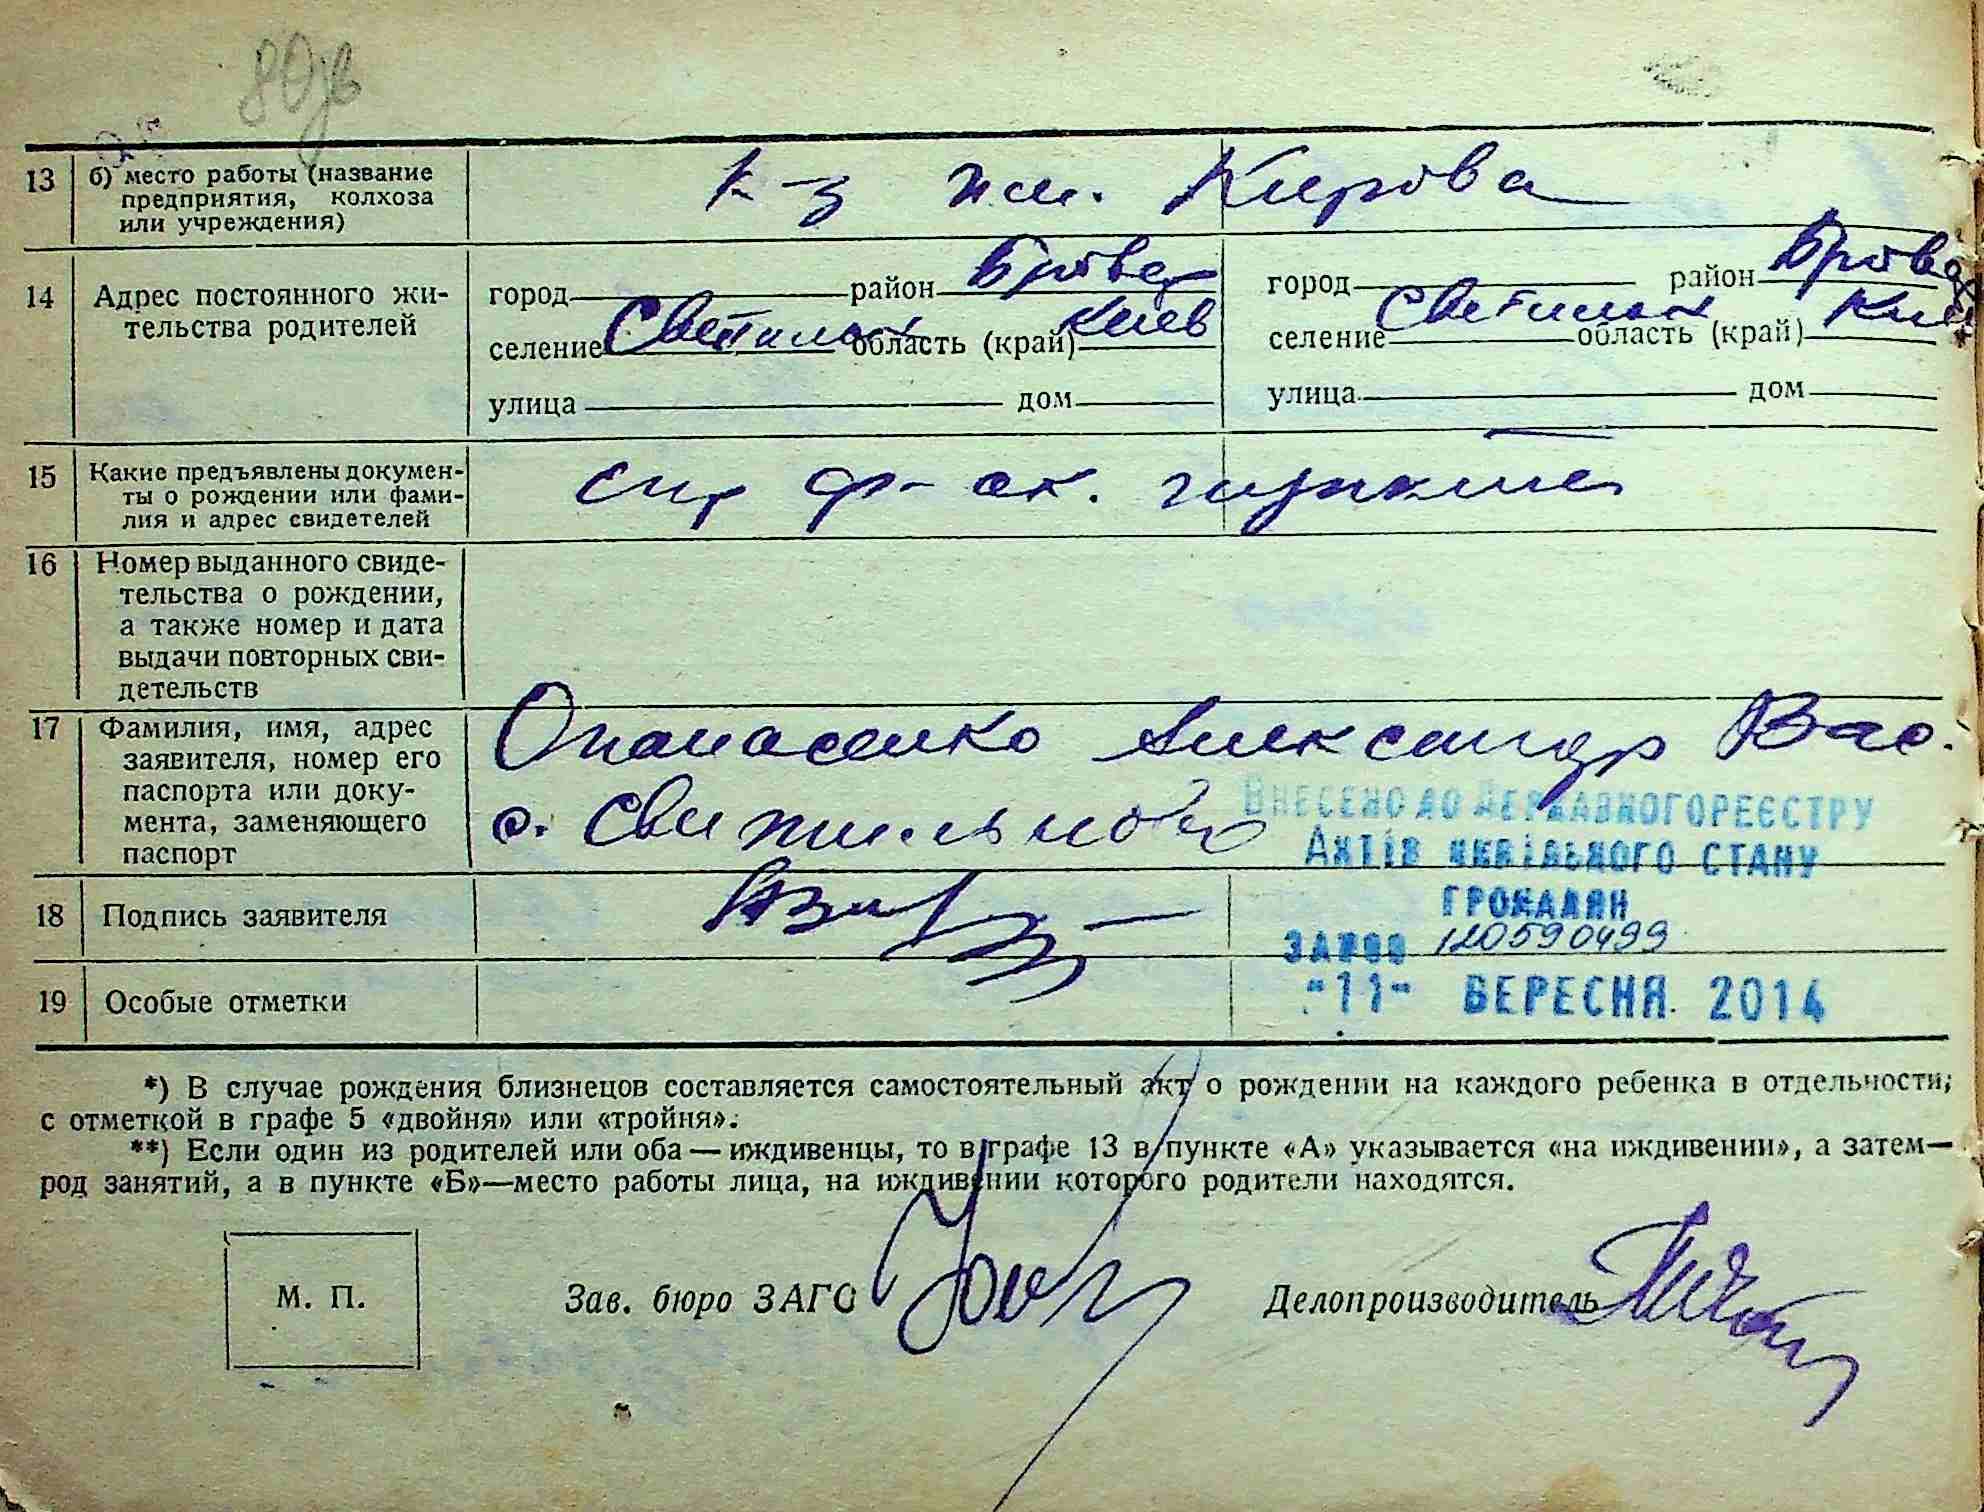 13 б) место работы (название
предприятия, колхоза
или учреждения)
к-з им. Кирова
14 Адрес постоянного жи-
тельства родителей
город район Бровар
селение Светильн область (край) Киев
улица дом
город район Бровар
селение Светильн область (край) Киев
улица дом
15 Какие предъявлены докумен-
ты о рождении или фами-
лия и адрес свидетелей
спр ф-ак.
16 Номер выданного свиде-
тельства о рождении,
а также номер и дата
выдачи повторных сви-
детельств
17 Фамилия, имя, адрес
заявителя, номер его
паспорта или доку-
мента, заменяющего
паспорт
Опанасенко Александр Вас.
с. Свитильное
Внесено до Державного реєстру
Актів цивільного стану
громадян
за №00 120590499
"11" вересня 2014
18 Подпись заявителя
19 Особые отметки
*) В случае рождения близнецов составляется самостоятельный акт о рождении на каждого ребенка в отдельности,
с отметкой в графе 5 «двойня» или «тройня».
**) Если один из родителей или оба — иждивенцы, то в графе 13 в пункте «А» указывается «на иждивении», а затем—
род занятий, а в пункте «Б»—место работы лица, на иждивении которого родители находятся.
М. П.
Зав. бюро ЗАГС
Делопроизводитель